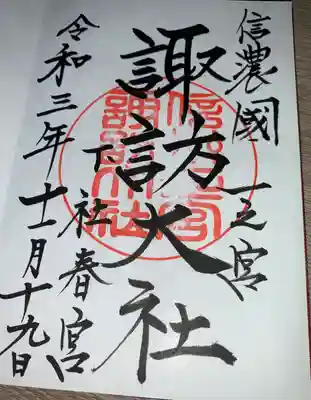 信濃國一之宮
諏訪大社
下社春宮
令和三年十一月十九日